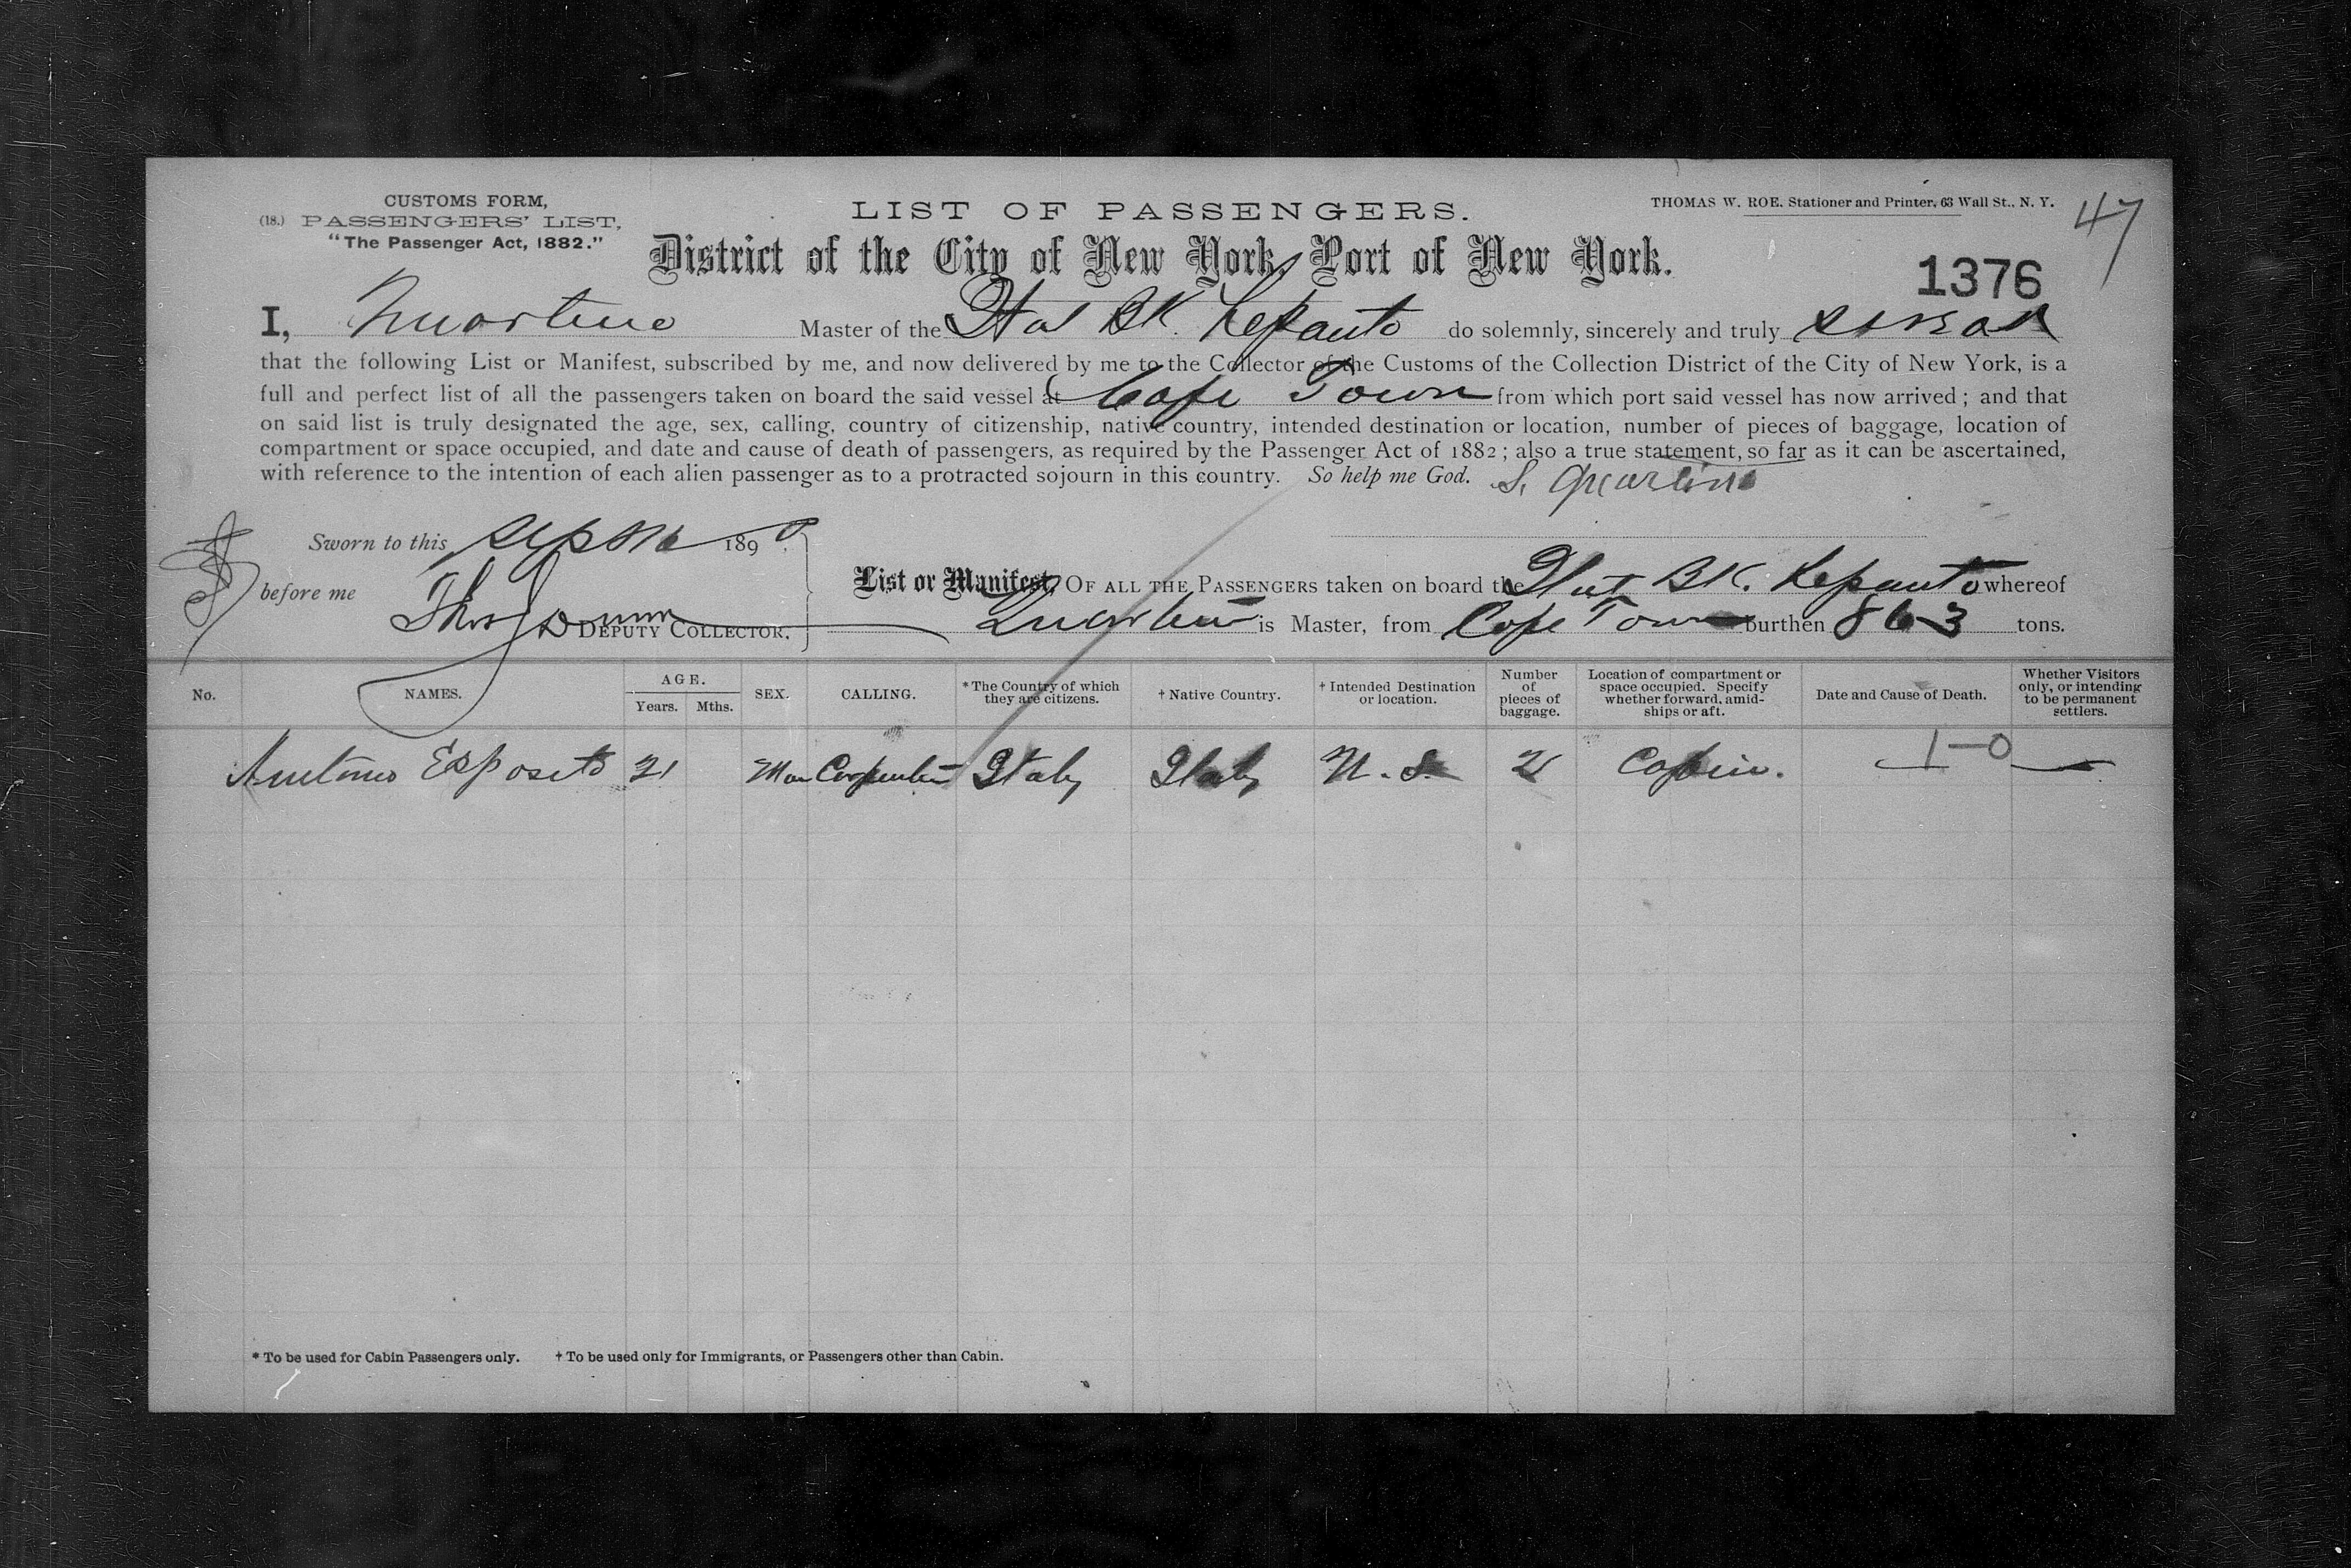 CUSTOMS FORM,
(18.) PASSENGERS' LIST,
"The Passenger Act, 1882."
LIST OF PASSENGERS.
THOMAS W. ROE. Stationer and Printer, 63 Wall St., N. Y.
47
District of the City of New York, Port of New York.
1376
I, Master of the Ital BK. Lepanto do solemnly, sincerely and truly swear
that the following List or Manifest, subscribed by me, and now delivered by me to the Collector of the Customs of the Collection District of the City of New York, is a
full and perfect list of all the passengers taken on board the said vessel at Cape Town from which port said vessel has now arrived; and that
on said list is truly designated the age, sex, calling, country of citizenship, native country, intended destination or location, number of pieces of baggage, location of
compartment or space occupied, and date and cause of death of passengers, as required by the Passenger Act of 1882; also a true statement, so far as it can be ascertained,
with reference to the intention of each alien passenger as to a protracted sojourn in this country. So help me God.
Sworn to this 1890
before me
DEPUTY COLLECTOR.
List or Manifest, OF ALL THE PASSENGERS taken on board the BK. Lepanto whereof
is Master, from Cape Town burthen 863 tons.
No. NAMES. AGE. Years. Mths. SEX. CALLING. * The Country of which they are citizens. † Native Country. † Intended Destination or location. Number of pieces of baggage. Location of compartment or space occupied. Specify whether forward, amidships or aft. Date and Cause of Death. Whether Visitors only, or intending to be permanent settlers.
Antonio Esposito 21 Man Carpenter Italy Italy U.S. 2 Cabin. 1-0
* To be used for Cabin Passengers only. † To be used only for Immigrants, or Passengers other than Cabin.